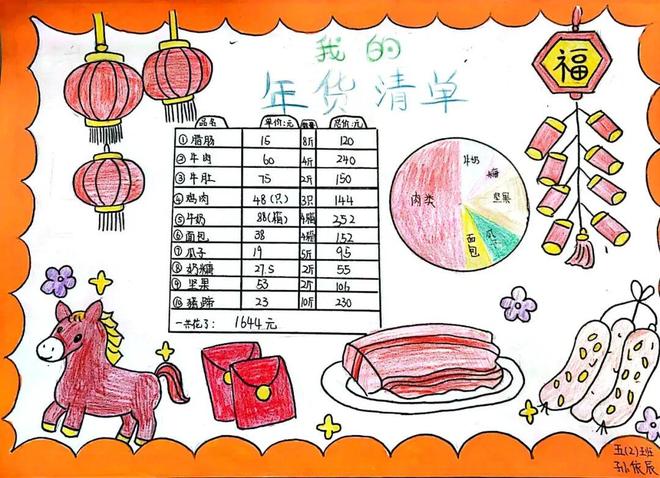 我的
年货清单
福
品名 单价:元 数量 总价:元
①腊肠 15 8斤 120
②牛肉 60 4斤 240
③牛肚 75 2斤 150
④鸡肉 48(只) 3只 144
⑤牛奶 88(箱) 4箱 252
⑥面包 38 4箱 152
⑦瓜子 19 5斤 95
⑧奶糖 27.5 2斤 55
⑨坚果 53 2斤 106
⑩猪蹄 23 10斤 230
一共花了: 1644元
牛奶
糖
坚果
肉类
瓜子
面包
五(2)班
孙依辰